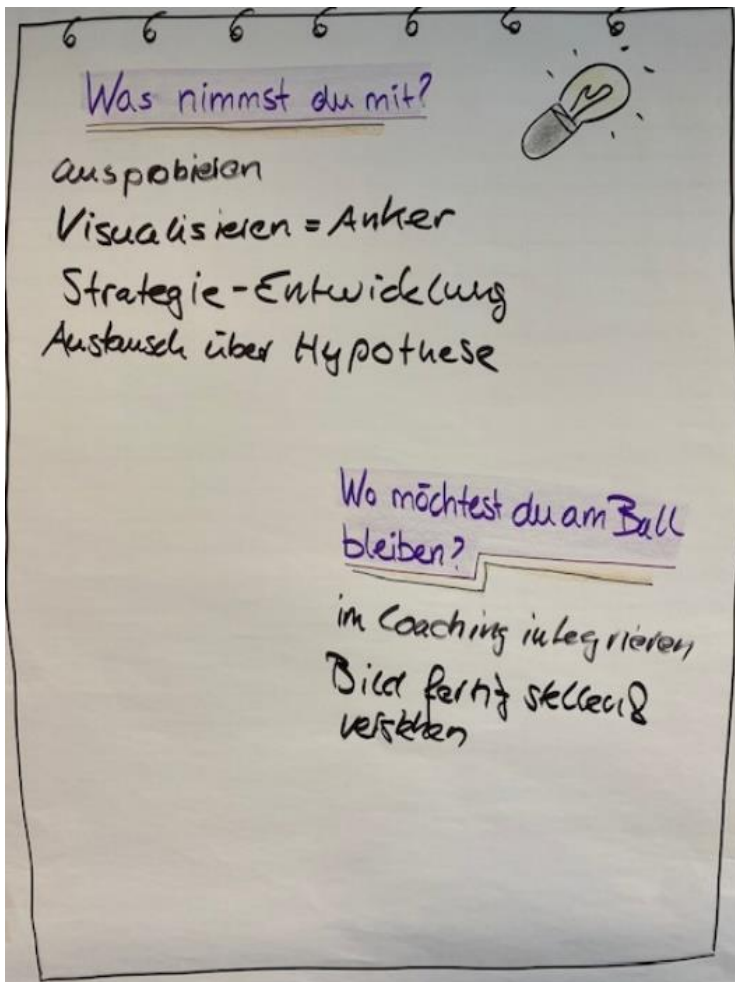 Was nimmst du mit?
ausprobieren
Visualisieren = Anker
Strategie-Entwicklung
Austausch über Hypothese
Wo möchtest du am Ball
bleiben?
im Coaching integrieren
Bild fertig stellen &
verstehen